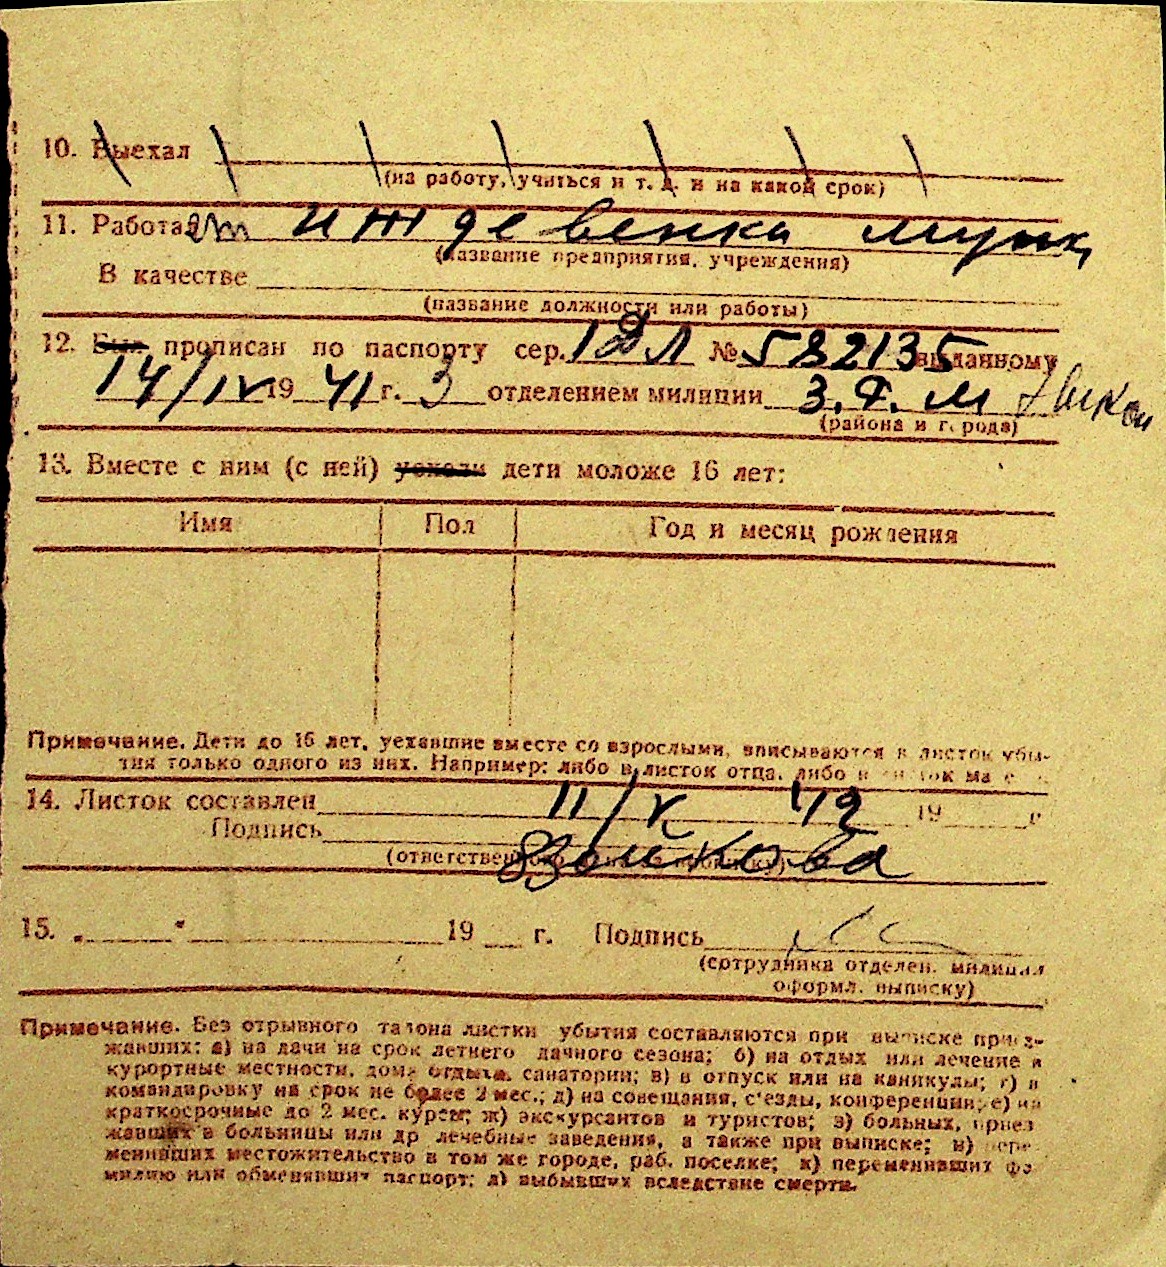 10. Выехал
(на работу, учиться и т. д. и на какой срок)
11. Работает иждевенка
(название предприятия, учреждения)
В качестве
(название должности или работы)
12. Был прописан по паспорту сер. № 582135 выданному
14/IV 19 41 г. 3 отделением милиции З.Ф.М
(района и города)
13. Вместе с ним (с ней) уехали дети моложе 16 лет:
Имя Пол Год и месяц рождения
Примечание. Дети до 16 лет, уехавшие вместе со взрослыми, вписываются в листок убы-
тия только одного из них. Например: либо в листок отца, либо
14. Листок составлен 11/V 42 19 г.
Подпись Зайкова
15. „ “ 19 г. Подпись
(сотрудника отделен. милиции
оформл. выписку)
Примечание. Без отрывного талона листки убытия составляются при выписке приез-
жавших: а) на дачи на срок летнего дачного сезона; б) на отдых или лечение в
курортные местности, дома отдыха, санатории; в) в отпуск или на каникулы; г) в
командировку на срок не более 2 мес.; д) на совещания, с'езды, конференции; е) на
краткосрочные до 2 мес. курсы; ж) экскурсантов и туристов; з) больных, приез
жавших в больницы или др лечебные заведения, а также при выписке; и) пере
менивших местожительство в том же городе, раб. поселке; к) переменивших фа
милию или обменявших паспорт; л) выбывших вследствие смерти.